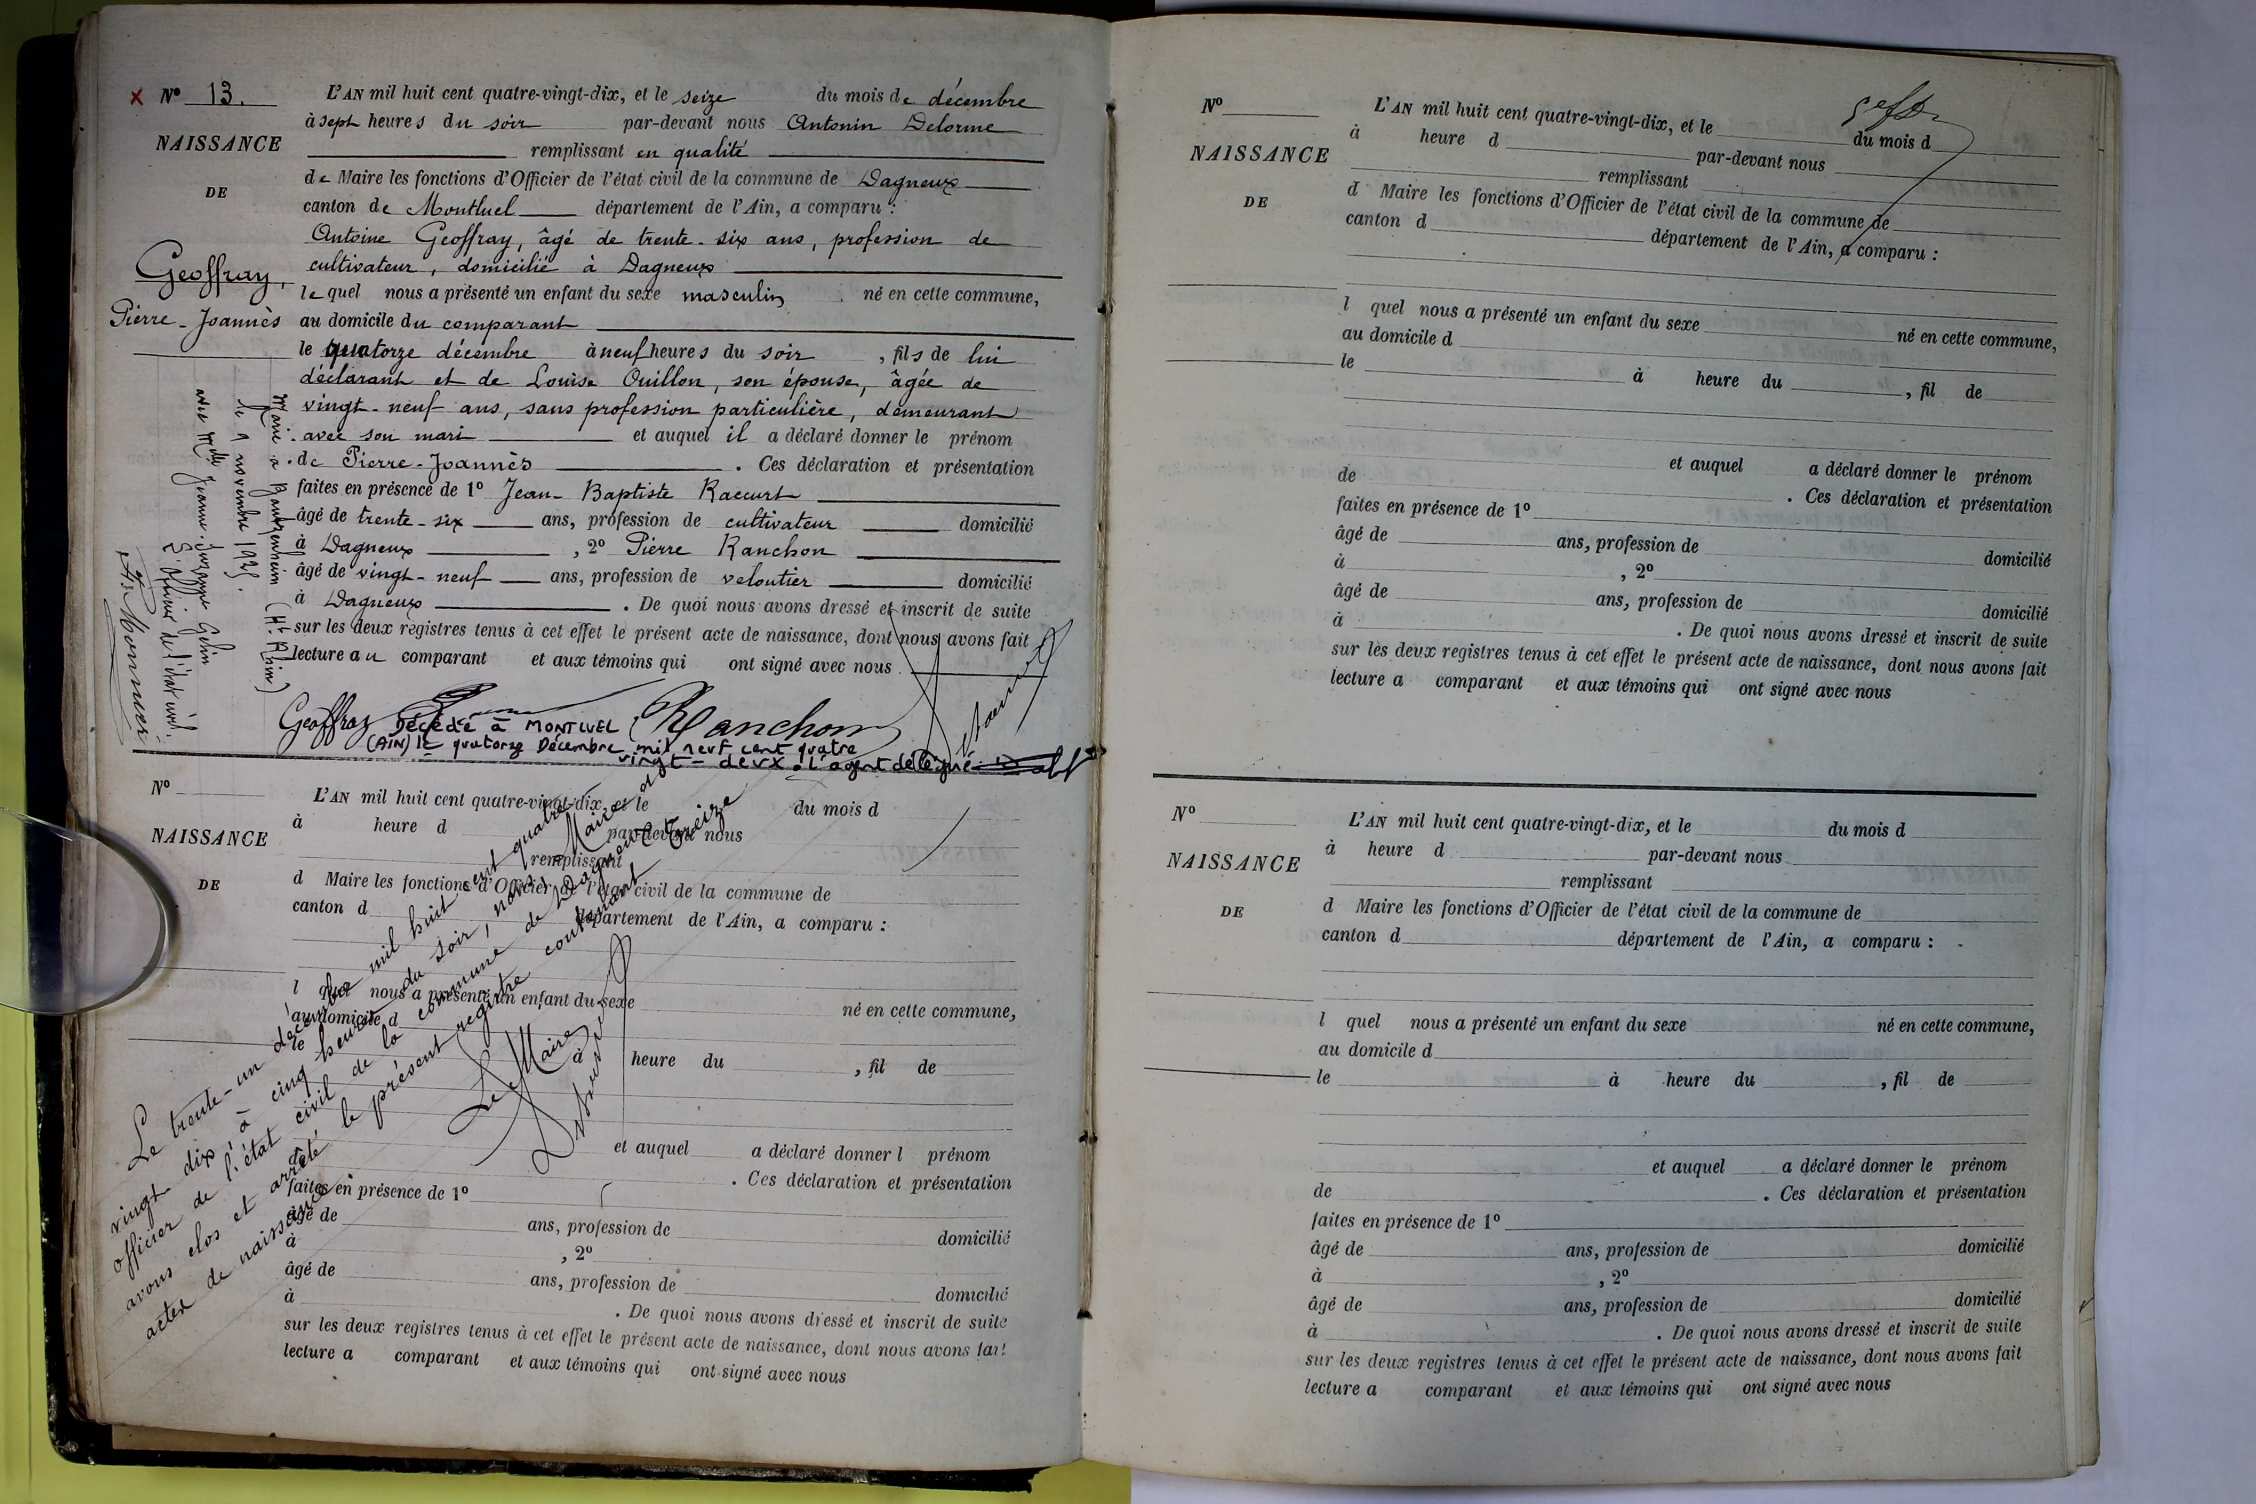 x Nº 13.
NAISSANCE
DE
Geoffray,
Pierre-Joannès
L'AN mil huit cent quatre-vingt-dix, et le seize du mois de décembre
à sept heures du soir par-devant nous Antonin Delorme
remplissant en qualité
de Maire les fonctions d'Officier de l'état civil de la commune de Dagneux
canton de Montluel département de l'Ain, a comparu :
Antoine Geoffray, âgé de trente-six ans, profession de
cultivateur, domicilié à Dagneux
lequel nous a présenté un enfant du sexe masculin né en cette commune,
au domicile du comparant
le quatorze décembre à neuf heures du soir, fils de lui
déclarant et de Louise Ouillon, son épouse, âgée de
vingt-neuf ans, sans profession particulière, demeurant
avec son mari et auquel il a déclaré donner le prénom
de Pierre-Joannès. Ces déclaration et présentation
faites en présence de 1º Jean-Baptiste Raccurt
âgé de trente-six ans, profession de cultivateur domicilié
à Dagneux, 2º Pierre Ranchon
âgé de vingt-neuf ans, profession de veloutier domicilié
à Dagneux. De quoi nous avons dressé et inscrit de suite
sur les deux registres tenus à cet effet le présent acte de naissance, dont nous avons fait
lecture au comparant et aux témoins qui ont signé avec nous
Marié à Bantzenheim (Ht Rhin)
le 9 novembre 1925.
avec Melle Jeanne Josèphe Gelin
L'officier de l'état civil
Geoffray Ranchon
Décédé à MONTLUEL
(AIN) le quatorze Décembre mil neuf cent quatre
vingt-deux. L'agent délégué
Nº
NAISSANCE
DE
L'AN mil huit cent quatre-vingt-dix, et le du mois d
à heure d par-devant nous
remplissant
d Maire les fonctions d'Officier de l'état civil de la commune de
canton d département de l'Ain, a comparu :
l quel nous a présenté un enfant du sexe né en cette commune,
au domicile d
le à heure du , fil de
et auquel a déclaré donner l prénom
de . Ces déclaration et présentation
faites en présence de 1º
âgé de ans, profession de domicilié
à , 2º
âgé de ans, profession de domicilié
à . De quoi nous avons dressé et inscrit de suite
sur les deux registres tenus à cet effet le présent acte de naissance, dont nous avons fait
lecture a comparant et aux témoins qui ont signé avec nous
Le trente-un décembre mil huit cent quatre
vingt dix à cinq heures du soir, nous Maire
officier de l'état civil de la commune de Dagneux
avons clos et arrêté le présent registre contenant treize
actes de naissance.
Le Maire
Nº
NAISSANCE
DE
L'AN mil huit cent quatre-vingt-dix, et le du mois d
à heure d par-devant nous
remplissant
d Maire les fonctions d'Officier de l'état civil de la commune de
canton d département de l'Ain, a comparu :
l quel nous a présenté un enfant du sexe né en cette commune,
au domicile d
le à heure du , fil de
et auquel a déclaré donner le prénom
de . Ces déclaration et présentation
faites en présence de 1º
âgé de ans, profession de domicilié
à , 2º
âgé de ans, profession de domicilié
à . De quoi nous avons dressé et inscrit de suite
sur les deux registres tenus à cet effet le présent acte de naissance, dont nous avons fait
lecture a comparant et aux témoins qui ont signé avec nous
Nº
NAISSANCE
DE
L'AN mil huit cent quatre-vingt-dix, et le du mois d
à heure d par-devant nous
remplissant
d Maire les fonctions d'Officier de l'état civil de la commune de
canton d département de l'Ain, a comparu :
l quel nous a présenté un enfant du sexe né en cette commune,
au domicile d
le à heure du , fil de
et auquel a déclaré donner le prénom
de . Ces déclaration et présentation
faites en présence de 1º
âgé de ans, profession de domicilié
à , 2º
âgé de ans, profession de domicilié
à . De quoi nous avons dressé et inscrit de suite
sur les deux registres tenus à cet effet le présent acte de naissance, dont nous avons fait
lecture a comparant et aux témoins qui ont signé avec nous